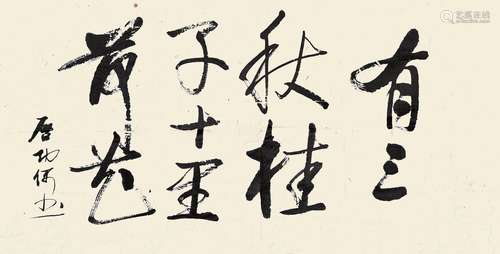 有三
秋桂
子十里
荷花
启功